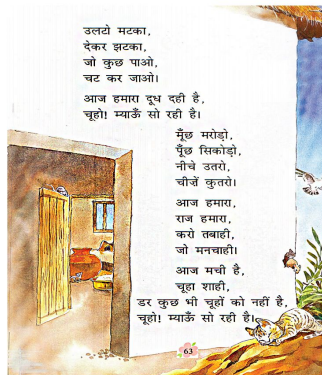 उलटो मटका,
देकर झटका,
जो कुछ पाओ,
चट कर जाओ।
आज हमारा दूध दही है,
चूहो! म्याऊँ सो रही है।
मूँछ मरोड़ो,
पूँछ सिकोड़ो,
नीचे उतरो,
चीज़ें कुतरो।
आज हमारा,
राज हमारा,
करो तबाही,
जो मनचाही।
आज मची है,
चूहा शाही,
डर कुछ भी चूहों को नहीं है,
चूहो! म्याऊँ सो रही है।
63